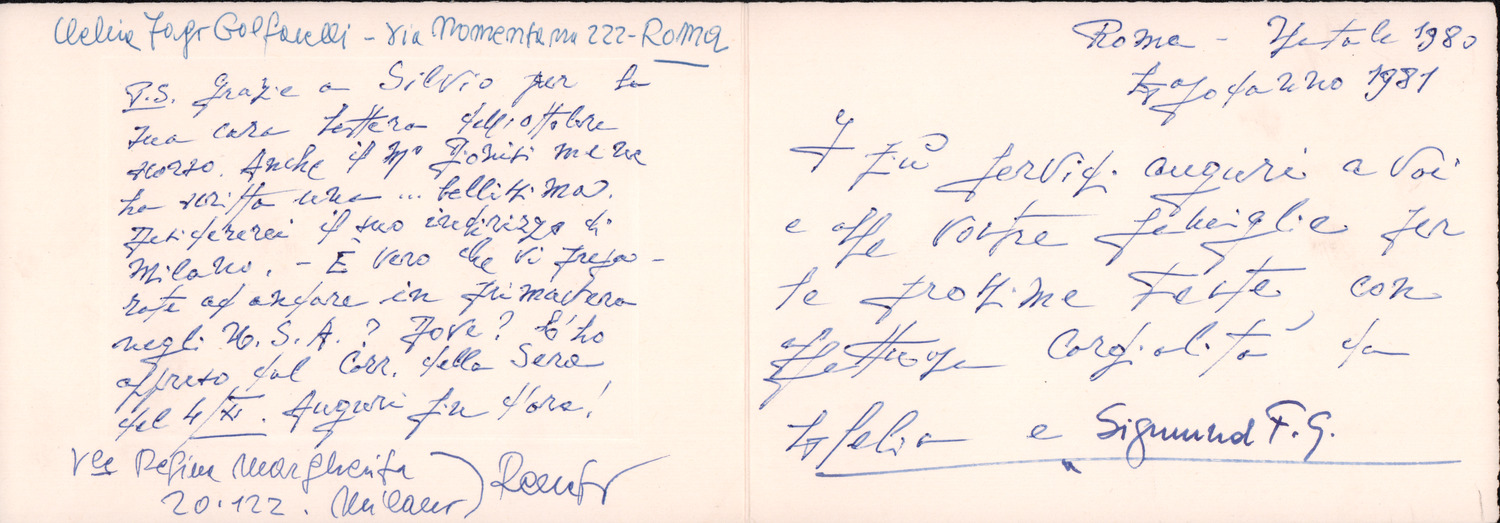 Clelia Fogr Golfarelli - Via Nomentana 222 - Roma
P.S. Grazie a Silvio per la
sua cara lettera dell'ottobre
scorso. Anche il Mº me ne
ha scritta una ... bellissima.
Desidererei il suo indirizzo di
Milano. - È vero che vi prepa-
rate ad andare in primavera
negli U.S.A.? Dove? L'ho
appreso dal Corr. della Sera
del 4/XI. Auguri fin d'ora!
Regina Margherita
20.122. Milano) Renato
Roma - Natale 1980
Capodanno 1981
I più fervidi auguri a voi
e alle vostre famiglie per
le prossime Feste, con
affettuosa cordialità da
Clelia e Sigmund F.G.